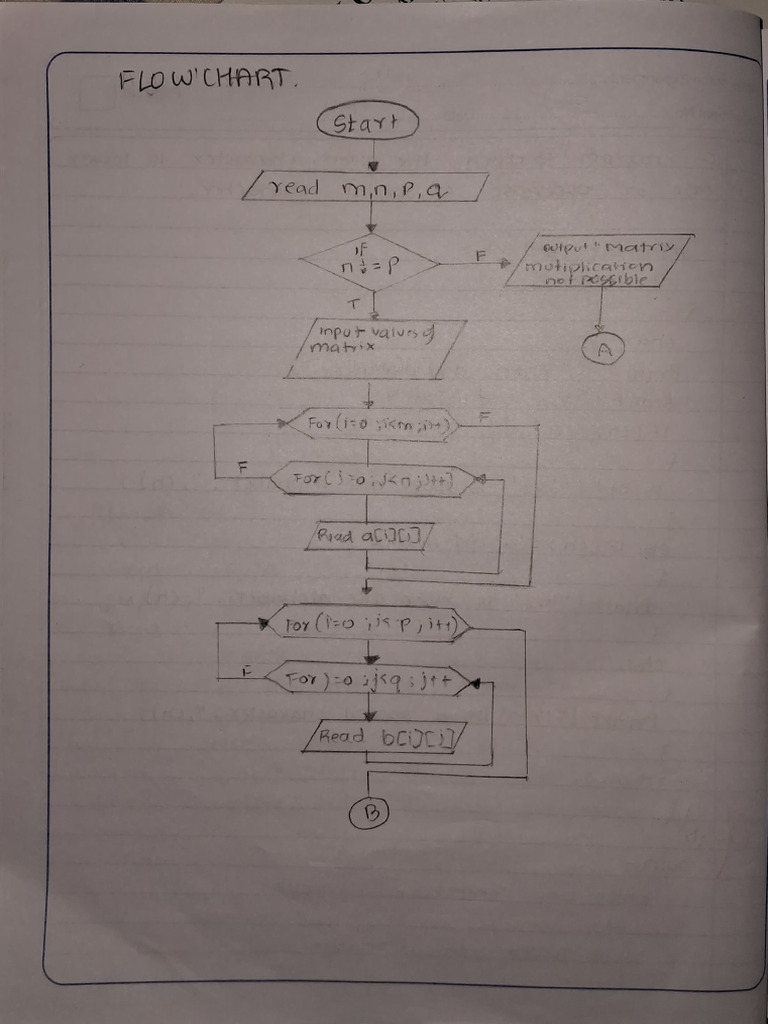 FLOW'CHART.
Start
read m,n,p,q
if
n != p
F
output "Matrix
mutiplication
not possible
T
A
input values of
matrix
For(i=0 ;i<m;i++)
F
F
For(j=0 ;j<n;j++)
Read a[i][j]
For(i=0 ;i<p,i++)
F
For j=0 ;j<q ; j++
Read b[i][j]
B